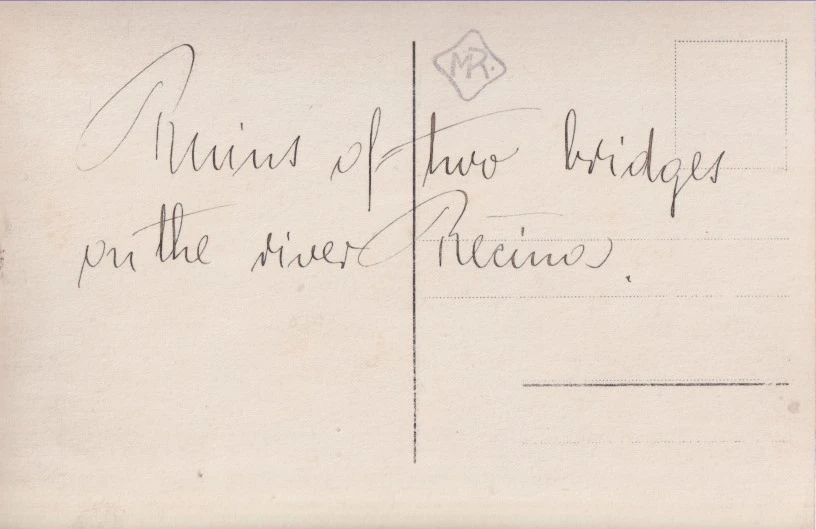 MR.
Ruins of two bridges
on the river Recina.